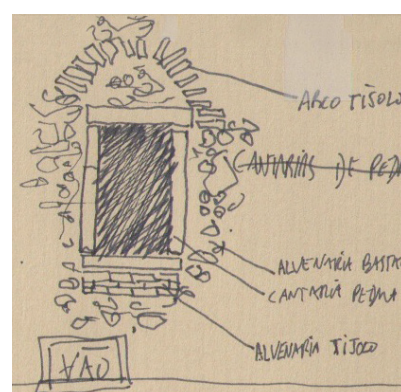 ARCO TIJOLO
CANTARIAS DE PEDR
ALVENARIA BASTA
CANTARIA PEDRA
ALVENARIA TIJOLO
VÃO